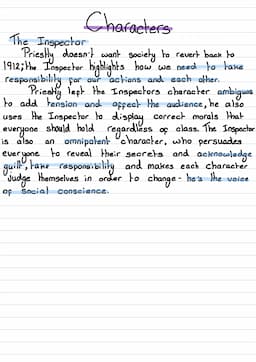 Characters
The Inspector
Priestly doesn't want society to revert back to
1912; the Inspector highlights how we need to take
responsibility for our actions and each other.
Priestly left the Inspectors character ambigus
to add tension and affect the audience, he also
uses the Inspector to display correct morals that
everyone should hold regardless of class. The Inspector
is also an omnipotent character, who persuades
everyone to reveal their secrets and acknowledge
guilt, take responsibility and makes each character
Judge themselves in order to change - he's the voice
of social conscience.